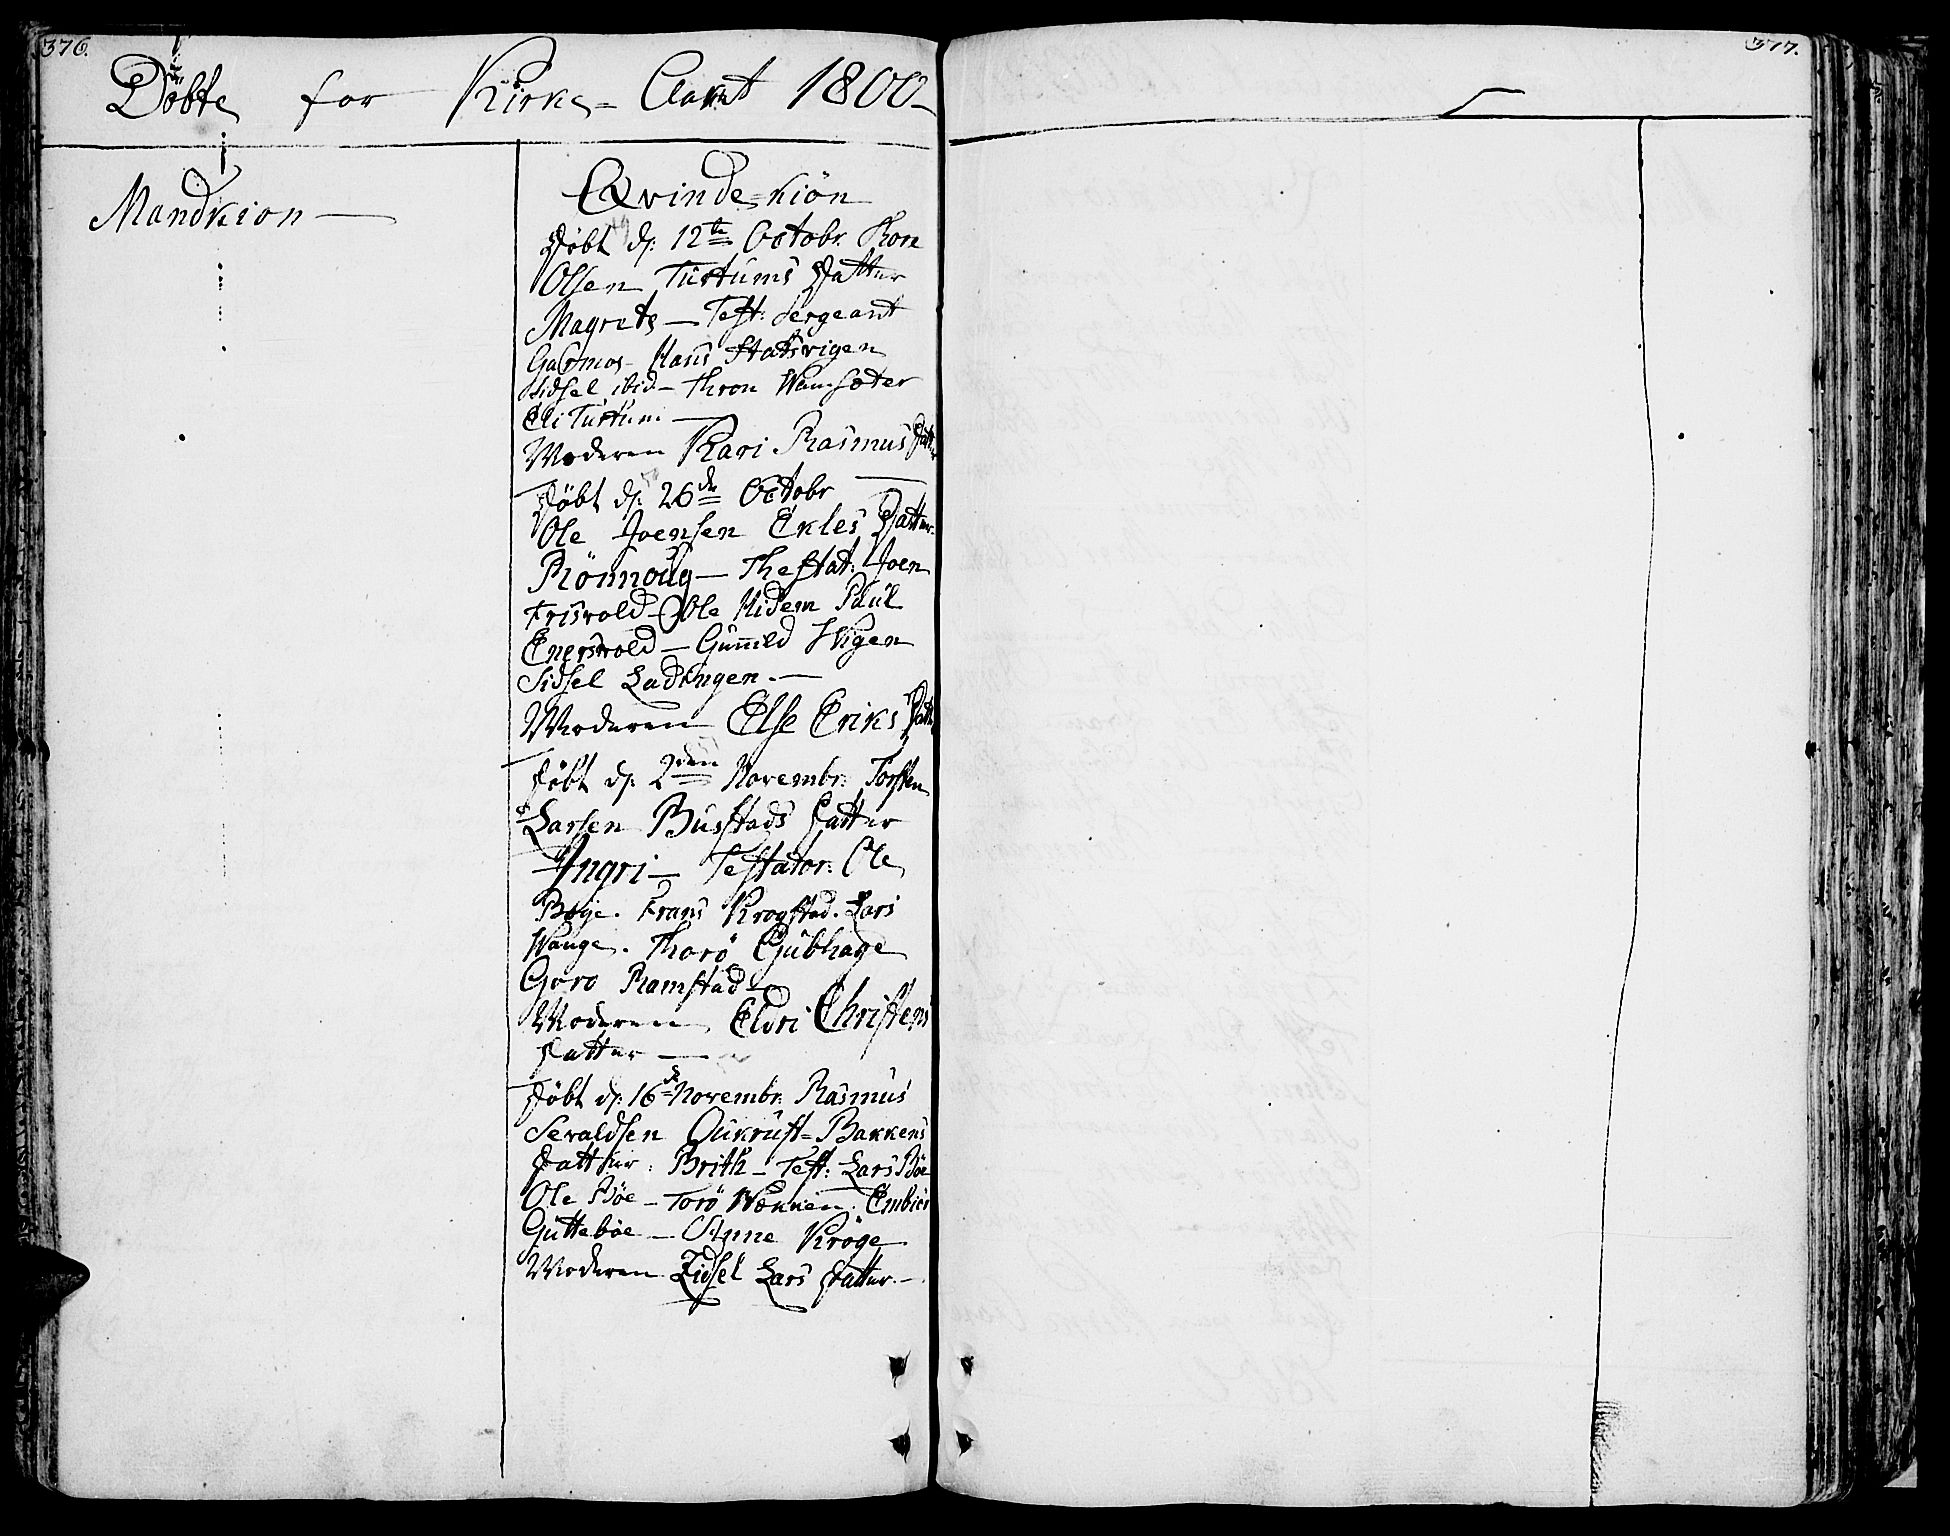 376.
377.
Döbte for Kirke- Aaret 1800
Mandkiön
Qvinde-kiön
Döbt d: 12te Octobr. Thon
Olsen Turtums Datter
Magrete — Test: Sergeant
Garmos - Hans Statsvigen
Sidsel ibid - Thron Wamsæter
Eli Turtum —
Moderen Kari Rasmus Datter
Döbt d: 26de Octobr
Ole Joensen Ekles Datter
Rönnoug — Thestat: Joen
Frisvold - Ole Hidem Paul
Enersvold — Gunnild Wigen
Sidsel Ladingen. —
Moderen Else Eriks Datter
Döbt d: 2den Novembr: Torsten
Larsen Bustads Datter
Yngri — Testator: Ole
Böye. Frans Krogstad. Lars
Wange. Thorö Gubhage
Goro Ramstad -
Moderen Eldri Christens
Datter —
Döbt d: 16de Novembr: Rasmus
Seraldsen Oukrust= Bakkens
Datter: Brith - Test: Lars Böe
Ole Böe - Torö Wonnen.
Gutteböe — Anne Kröge
Moderen Zidsel Lars Datter. —